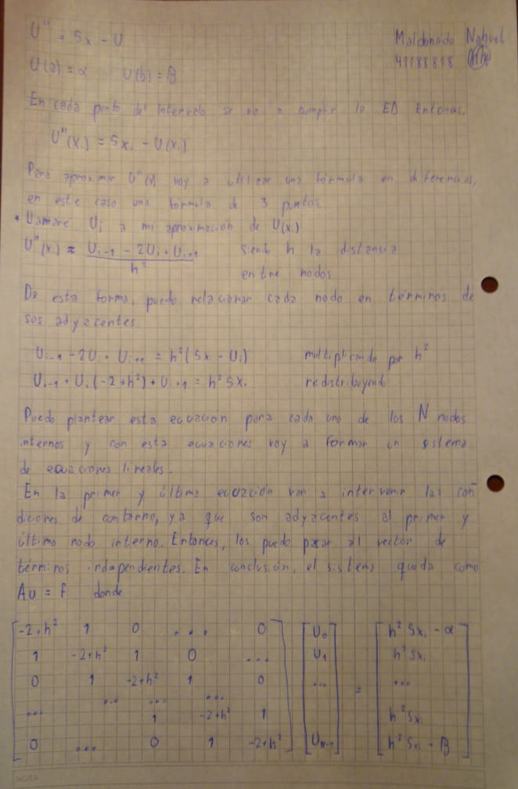 U'' = 5x - U
Maldonado Nahuel
U(a) = α U(b) = β
En cada punto del intervalo se va a cumplir la ED. Entonces,
U''(xᵢ) = 5xᵢ - U(xᵢ)
Para aproximar U''(x) voy a utilizar una fórmula en diferencias,
en este caso una fórmula de 3 puntos
* Llamaré Uᵢ a mi aproximación de U(xᵢ)
U''(xᵢ) ≈ (Uᵢ₋₁ - 2Uᵢ + Uᵢ₊₁) / h² siendo h la distancia
entre nodos
De esta forma, puedo relacionar cada nodo en términos de
sus adyacentes
Uᵢ₋₁ - 2Uᵢ + Uᵢ₊₁ = h²(5xᵢ - Uᵢ) multiplicando por h²
Uᵢ₋₁ + Uᵢ(-2+h²) + Uᵢ₊₁ = h²5xᵢ redistribuyendo
Puedo plantear esta ecuación para cada uno de los N nodos
internos y con esta ecuaciones voy a formar un sistema
de ecuaciones lineales.
En la primer y última ecuación van a intervenir las con-
diciones de contorno, ya que son adyacentes al primer y
último nodo interno. Entonces, los puedo pasar al vector de
términos independientes. En conclusión, el sistema queda como
Au = F donde
-2+h² 1 0 ... 0 U₀ h²5xᵢ - α
1 -2+h² 1 0 ... U₁ h²5xᵢ
0 1 -2+h² 1 0 ... = ...
... ... ... ...
1 -2+h² 1 h²5xᵢ
0 ... 0 1 -2+h² Uₙ₋₁ h²5xᵢ - β